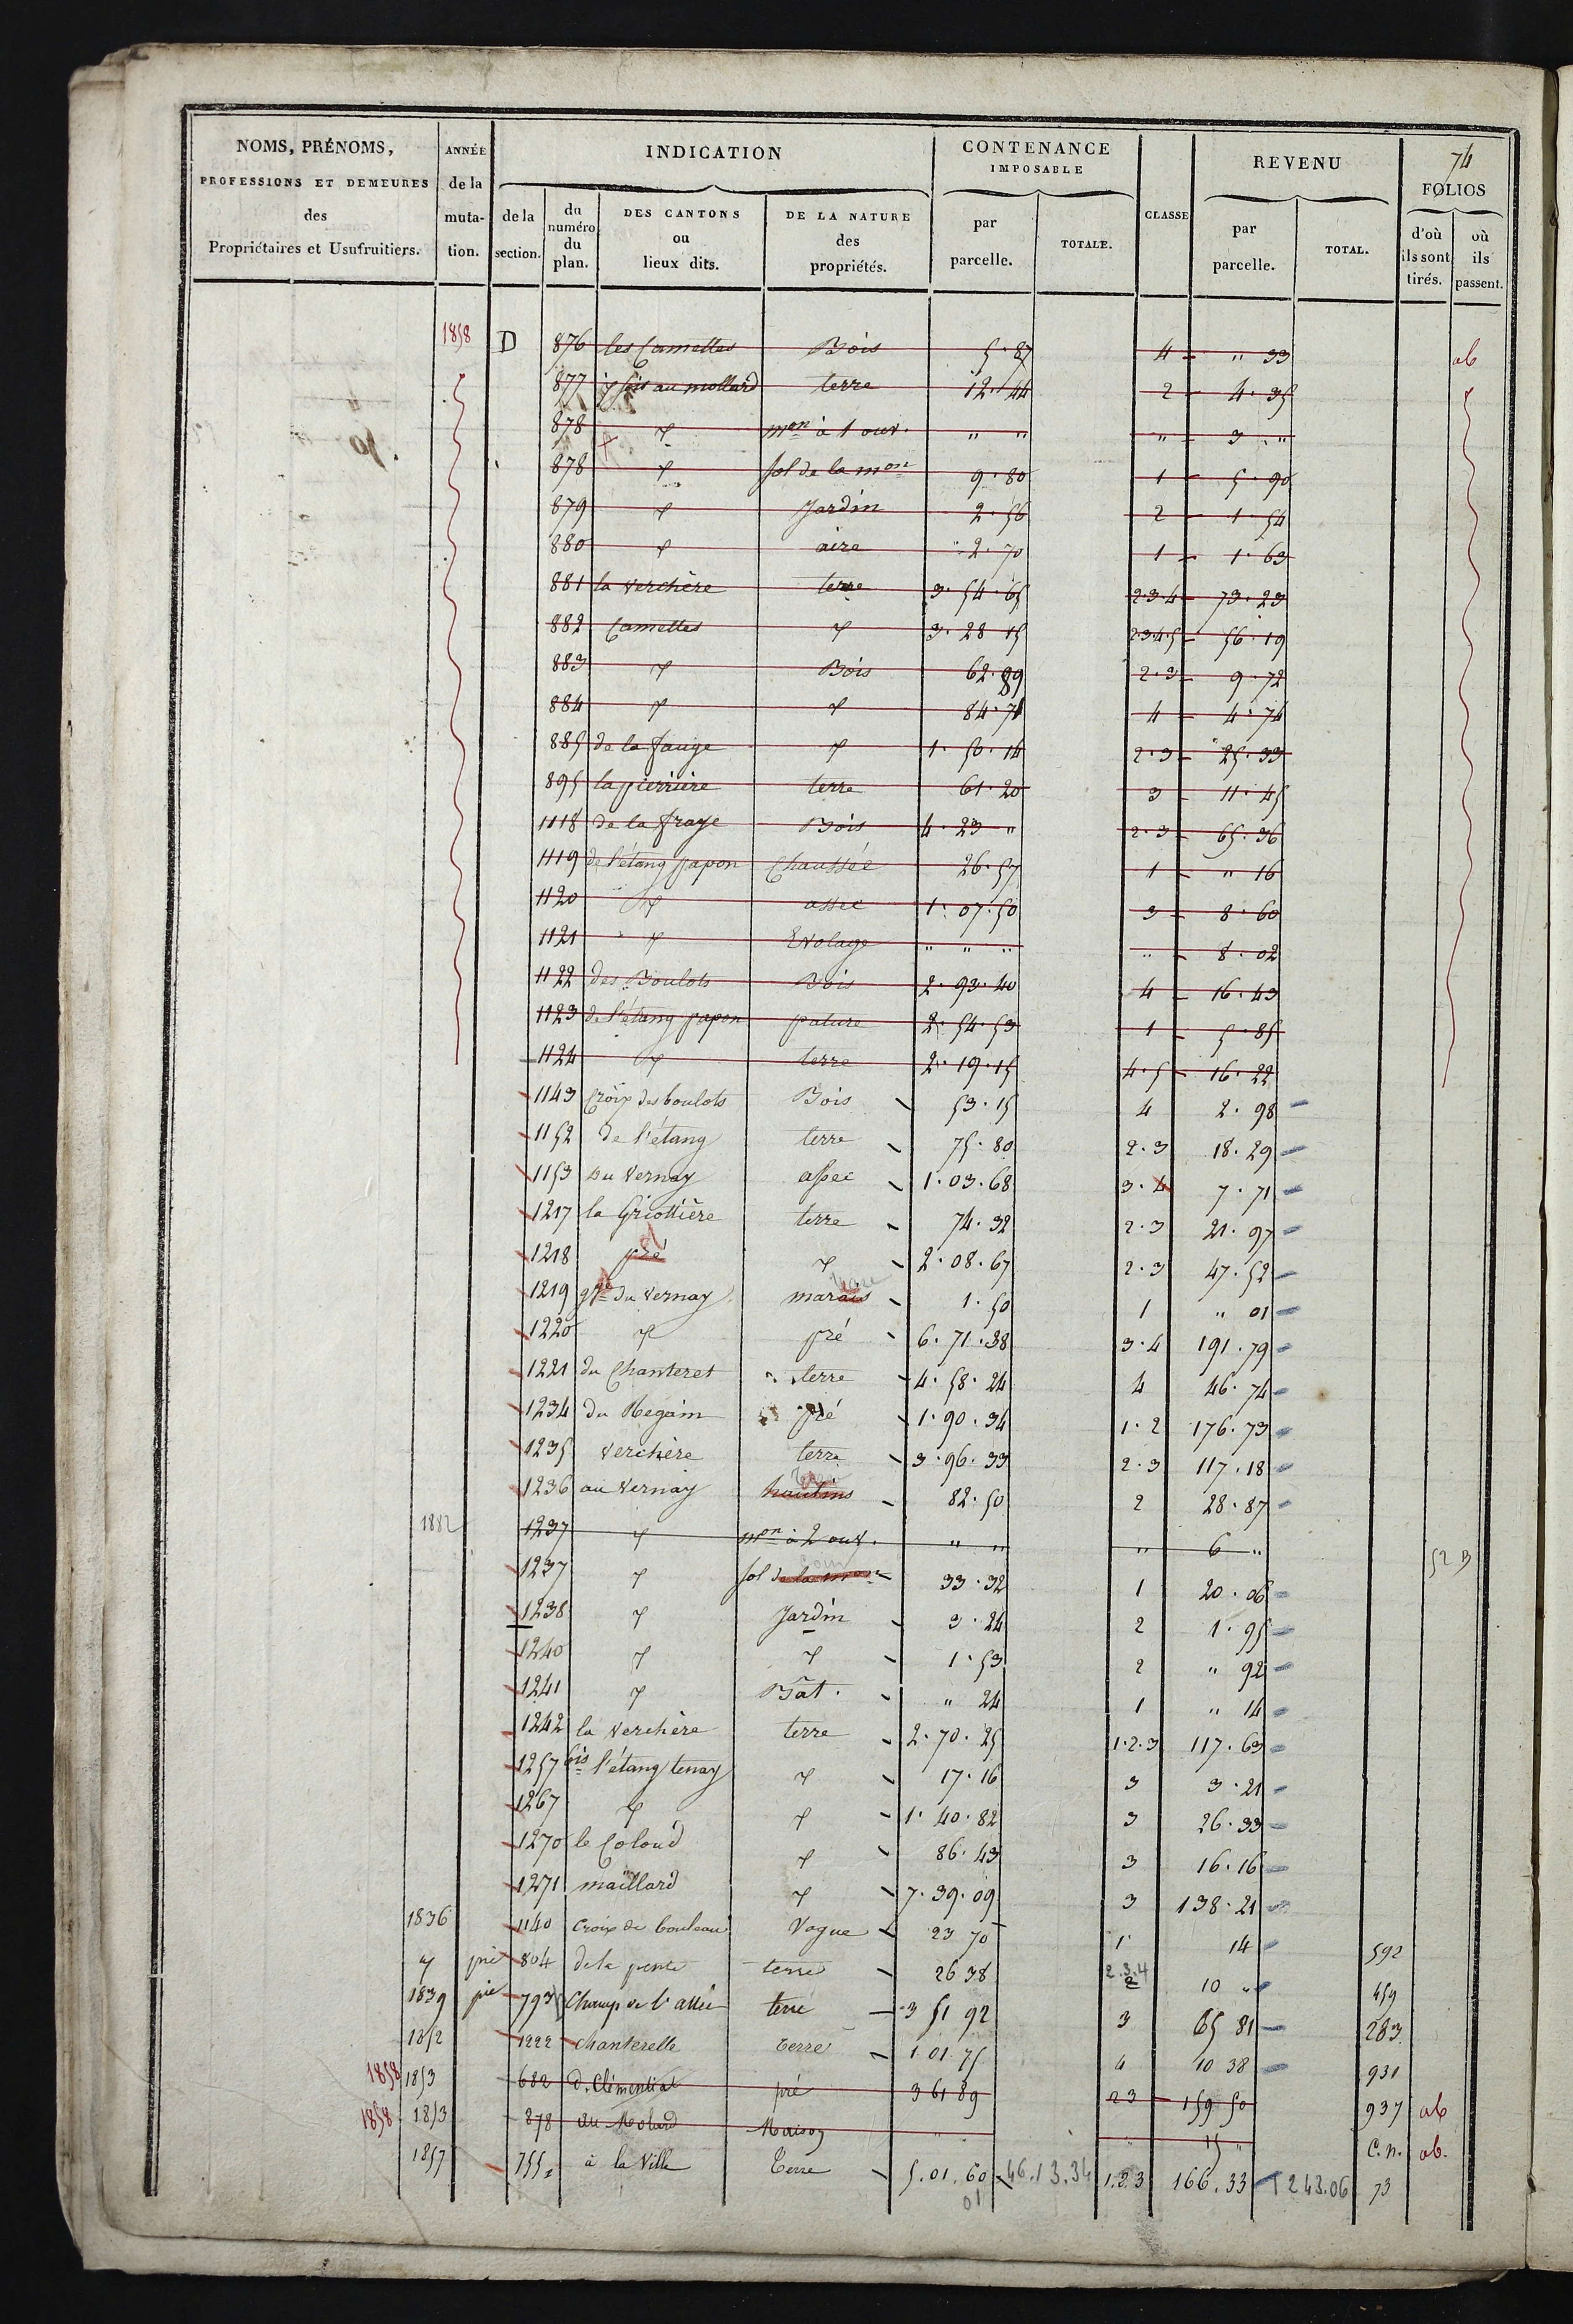 74
NOMS, PRÉNOMS, PROFESSIONS ET DEMEURES des Propriétaires et Usufruitiers.
ANNÉE de la mutation.
INDICATION
de la section.
du numéro du plan.
DES CANTONS ou lieux dits.
DE LA NATURE des propriétés.
CONTENANCE IMPOSABLE
par parcelle.
TOTALE.
CLASSE
REVENU
par parcelle.
TOTAL.
FOLIOS
d'où ils sont tirés.
où ils passent.
1858 D 876 les Camettes Bois 5.87 4 " 33 ab
877 terre 12.44 2 4.35
878 mon à 1 ouv. " " " 3 "
878 sol de la mon 9.80 1 5.90
879 Jardin 2.56 2 1.54
880 aire 2.70 1 1.63
881 la Verchère terre 3.54.65 2.3.4 73.23
882 Camettes 3.28 15 2.3.4.5 56.19
883 Bois 62.89 2.3 9.72
884 84.71 4 4.74
885 de la fauge 1.50.14 2.3 25.33
895 la pierrière terre 61.20 3 11.45
1118 de la fraye Bois 4.23 " 2.3 65.36
1119 de l'étang papon Chaussée 26.57 1 " 16
1120 assec 1.07.50 3 8.60
1121 Evolage " " " " 8.02
1122 des Boulots Bois 2.93.40 4 16.43
1123 de l'étang papon pature 2.54.53 1 5.85
1124 terre 2.19.15 4.5 16.22
1143 Croix des boulots Bois 53.15 4 2.98
1152 de l'étang terre 75.80 2.3 18.29
1153 du Vernay assec 1.03.68 3.4 7.71
1217 la Griottière terre 74.32 2.3 21.97
1218 pré 2.08.67 2.3 47.52
1219 gde du Vernay marais 1.50 1 " 01
1220 pré 6.71.38 3.4 191.79
1221 du Chanteret terre 4.58.24 4 46.74
1234 du Regain pré 1.90.34 1.2 176.73
1235 Verchère terre 3.96.33 2.3 117.18
1236 au Vernay hautins 82.50 2 28.87
1882 1237 mon à 2 ouv. " " " 6 "
1237 sol de la mon 33.32 1 20.06
1238 Jardin 3.24 2 1.95
1240 1.53 2 " 92
1241 Bât. " 24 1 " 14
1242 la Verchère terre 2.70.25 1.2.3 117.63
1257 bis l'étang tenay 17.16 3 3.21
1267 1.40.82 3 26.33
1270 le Coloud 86.43 3 16.16
1271 maillard 7.39.09 3 138.21
1836 1140 Croix de bouleau Vague 23 70 1 14 592
804 de la pente terre 26 38 2.3.4 10 " 459
1839 pie 793 Champ de l'allée terre 3 51 92 3 65 81 283
1852 1222 Chanterelle terre 1.01.75 4 10 38 931
1858 1853 682 d. Clémentiat pré 3 61 89 2 3 159 50 937 ab
1858 1853 878 au Molard Maison " " 15 " C.n. ab.
1857 755 à la Ville Terre 5.01.60 46.13.34 1.2.3 166.33 1243.06 73
01